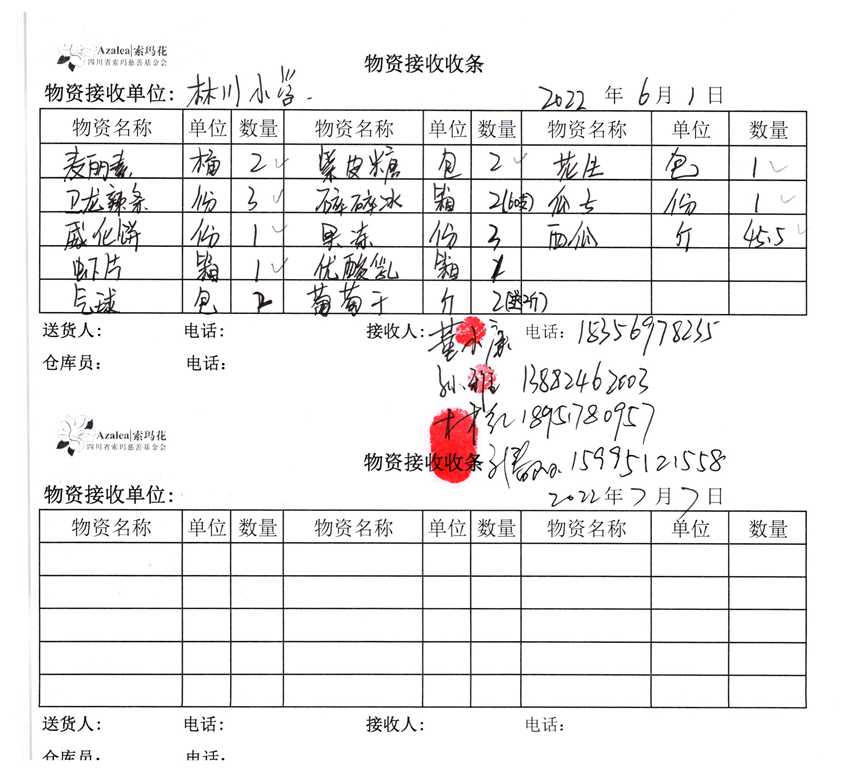 Azalea|索玛花
四川省索玛慈善基金会
物资接收收条
物资接收单位： 林川小学. 2022 年 6 月 1 日
物资名称 单位 数量 物资名称 单位 数量 物资名称 单位 数量
麦丽素 桶 2 紫皮糖 包 2 花生 包 1
卫龙辣条 份 3 碎碎冰 箱 2(60支) 瓜子 份 1
威化饼 份 1 果冻 份 3 西瓜 斤 45.5
虾片 箱 1 优酸乳 箱
气球 包 2 葡萄干 斤 2
送货人： 电话： 接收人： 董永康 电话： 18356978235
仓库员： 电话： 13882462003
18951780957
Azalea|索玛花
四川省索玛慈善基金会
物资接收收条 15995121558
物资接收单位： 2022 年 7 月 7 日
物资名称 单位 数量 物资名称 单位 数量 物资名称 单位 数量
送货人： 电话： 接收人： 电话：
仓库员： 电话：